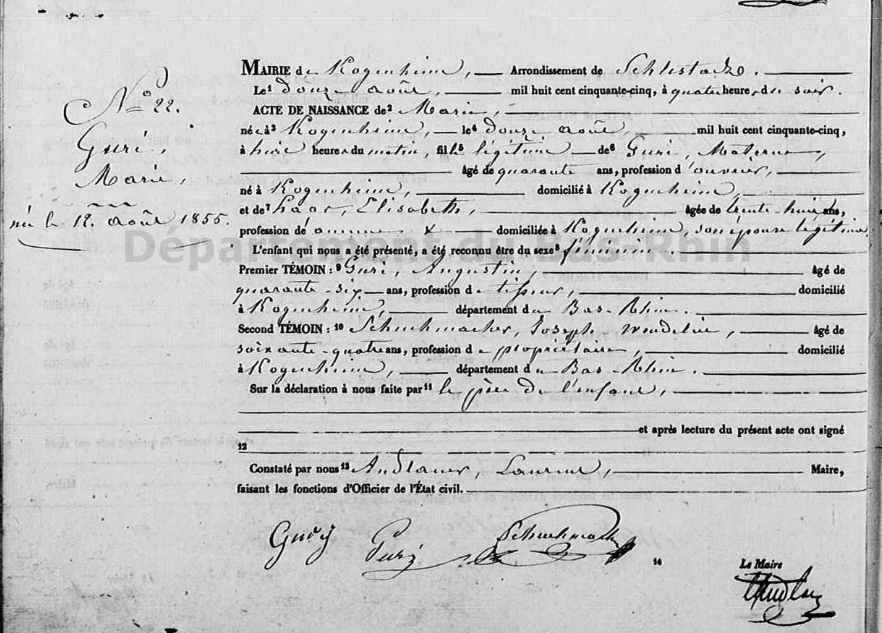 N° 22.
Guri,
Marie,
née le 12 août 1855.
MAIRIE de Kogenheim, Arrondissement de Schlestadt.
Le¹ douze août, mil huit cent cinquante-cinq, à quatre heures du soir.
ACTE DE NAISSANCE de² Marie,
née à³ Kogenheim, le⁴ douze août, mil huit cent cinquante-cinq,
à huit heures du matin, fille⁵ légitime de⁶ Guri, Materne,
âgé de quarante ans, profession d'ouvrier,
né à Kogenheim, domicilié à Kogenheim,
et de⁷ Haas, Elisabeth, âgée de trente huit ans,
profession d'aucune domiciliée à Kogenheim, son épouse légitime
L'enfant qui nous a été présenté, a été reconnu être du sexe⁸ féminin
Premier TÉMOIN : ⁹ Guri, Augustin, âgé de
quarante-six ans, profession de tisseur, domicilié
à Kogenheim, département du Bas-Rhin.
Second TÉMOIN : ¹⁰ Schuhmacher, Joseph Wendelin, âgé de
soixante-quatre ans, profession de propriétaire, domicilié
à Kogenheim, département du Bas-Rhin.
Sur la déclaration à nous faite par¹¹ le père de l'enfant,
et après lecture du présent acte ont signé
12
Constaté par nous¹³ Andlauer, Laurent, Maire,
faisant les fonctions d'Officier de l'État civil.
Gury Guri Schuhmach
14
Le Maire
Andlauer
Département du Bas-Rhin